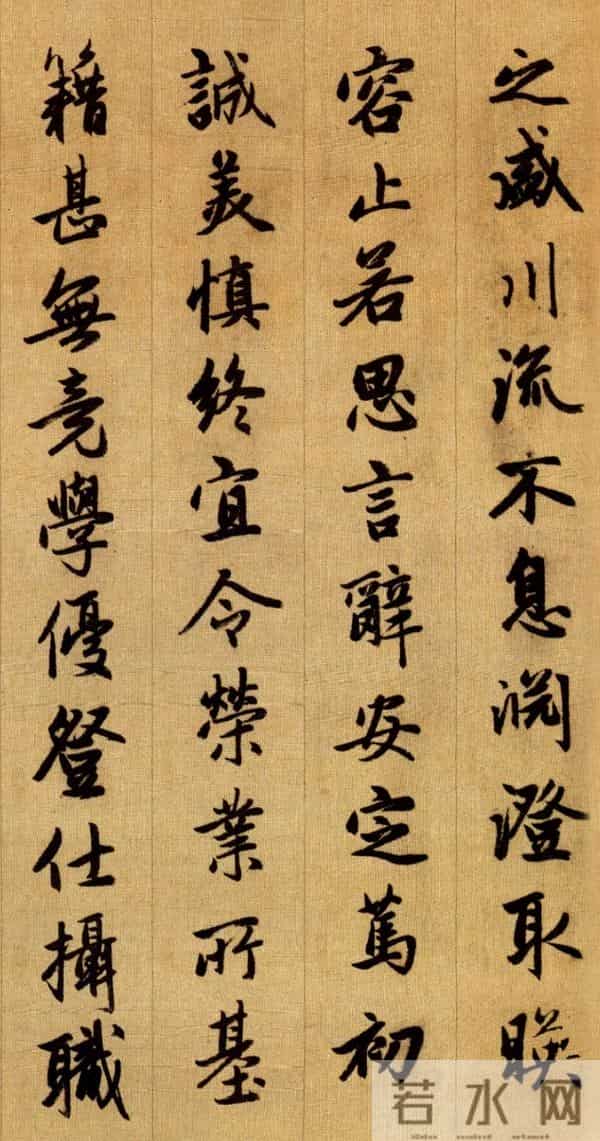 之盛川流不息淵澄取暎
容止若思言辭安定篤初
誠美慎終宜令榮業所基
籍甚無竟學優登仕攝職
若水网